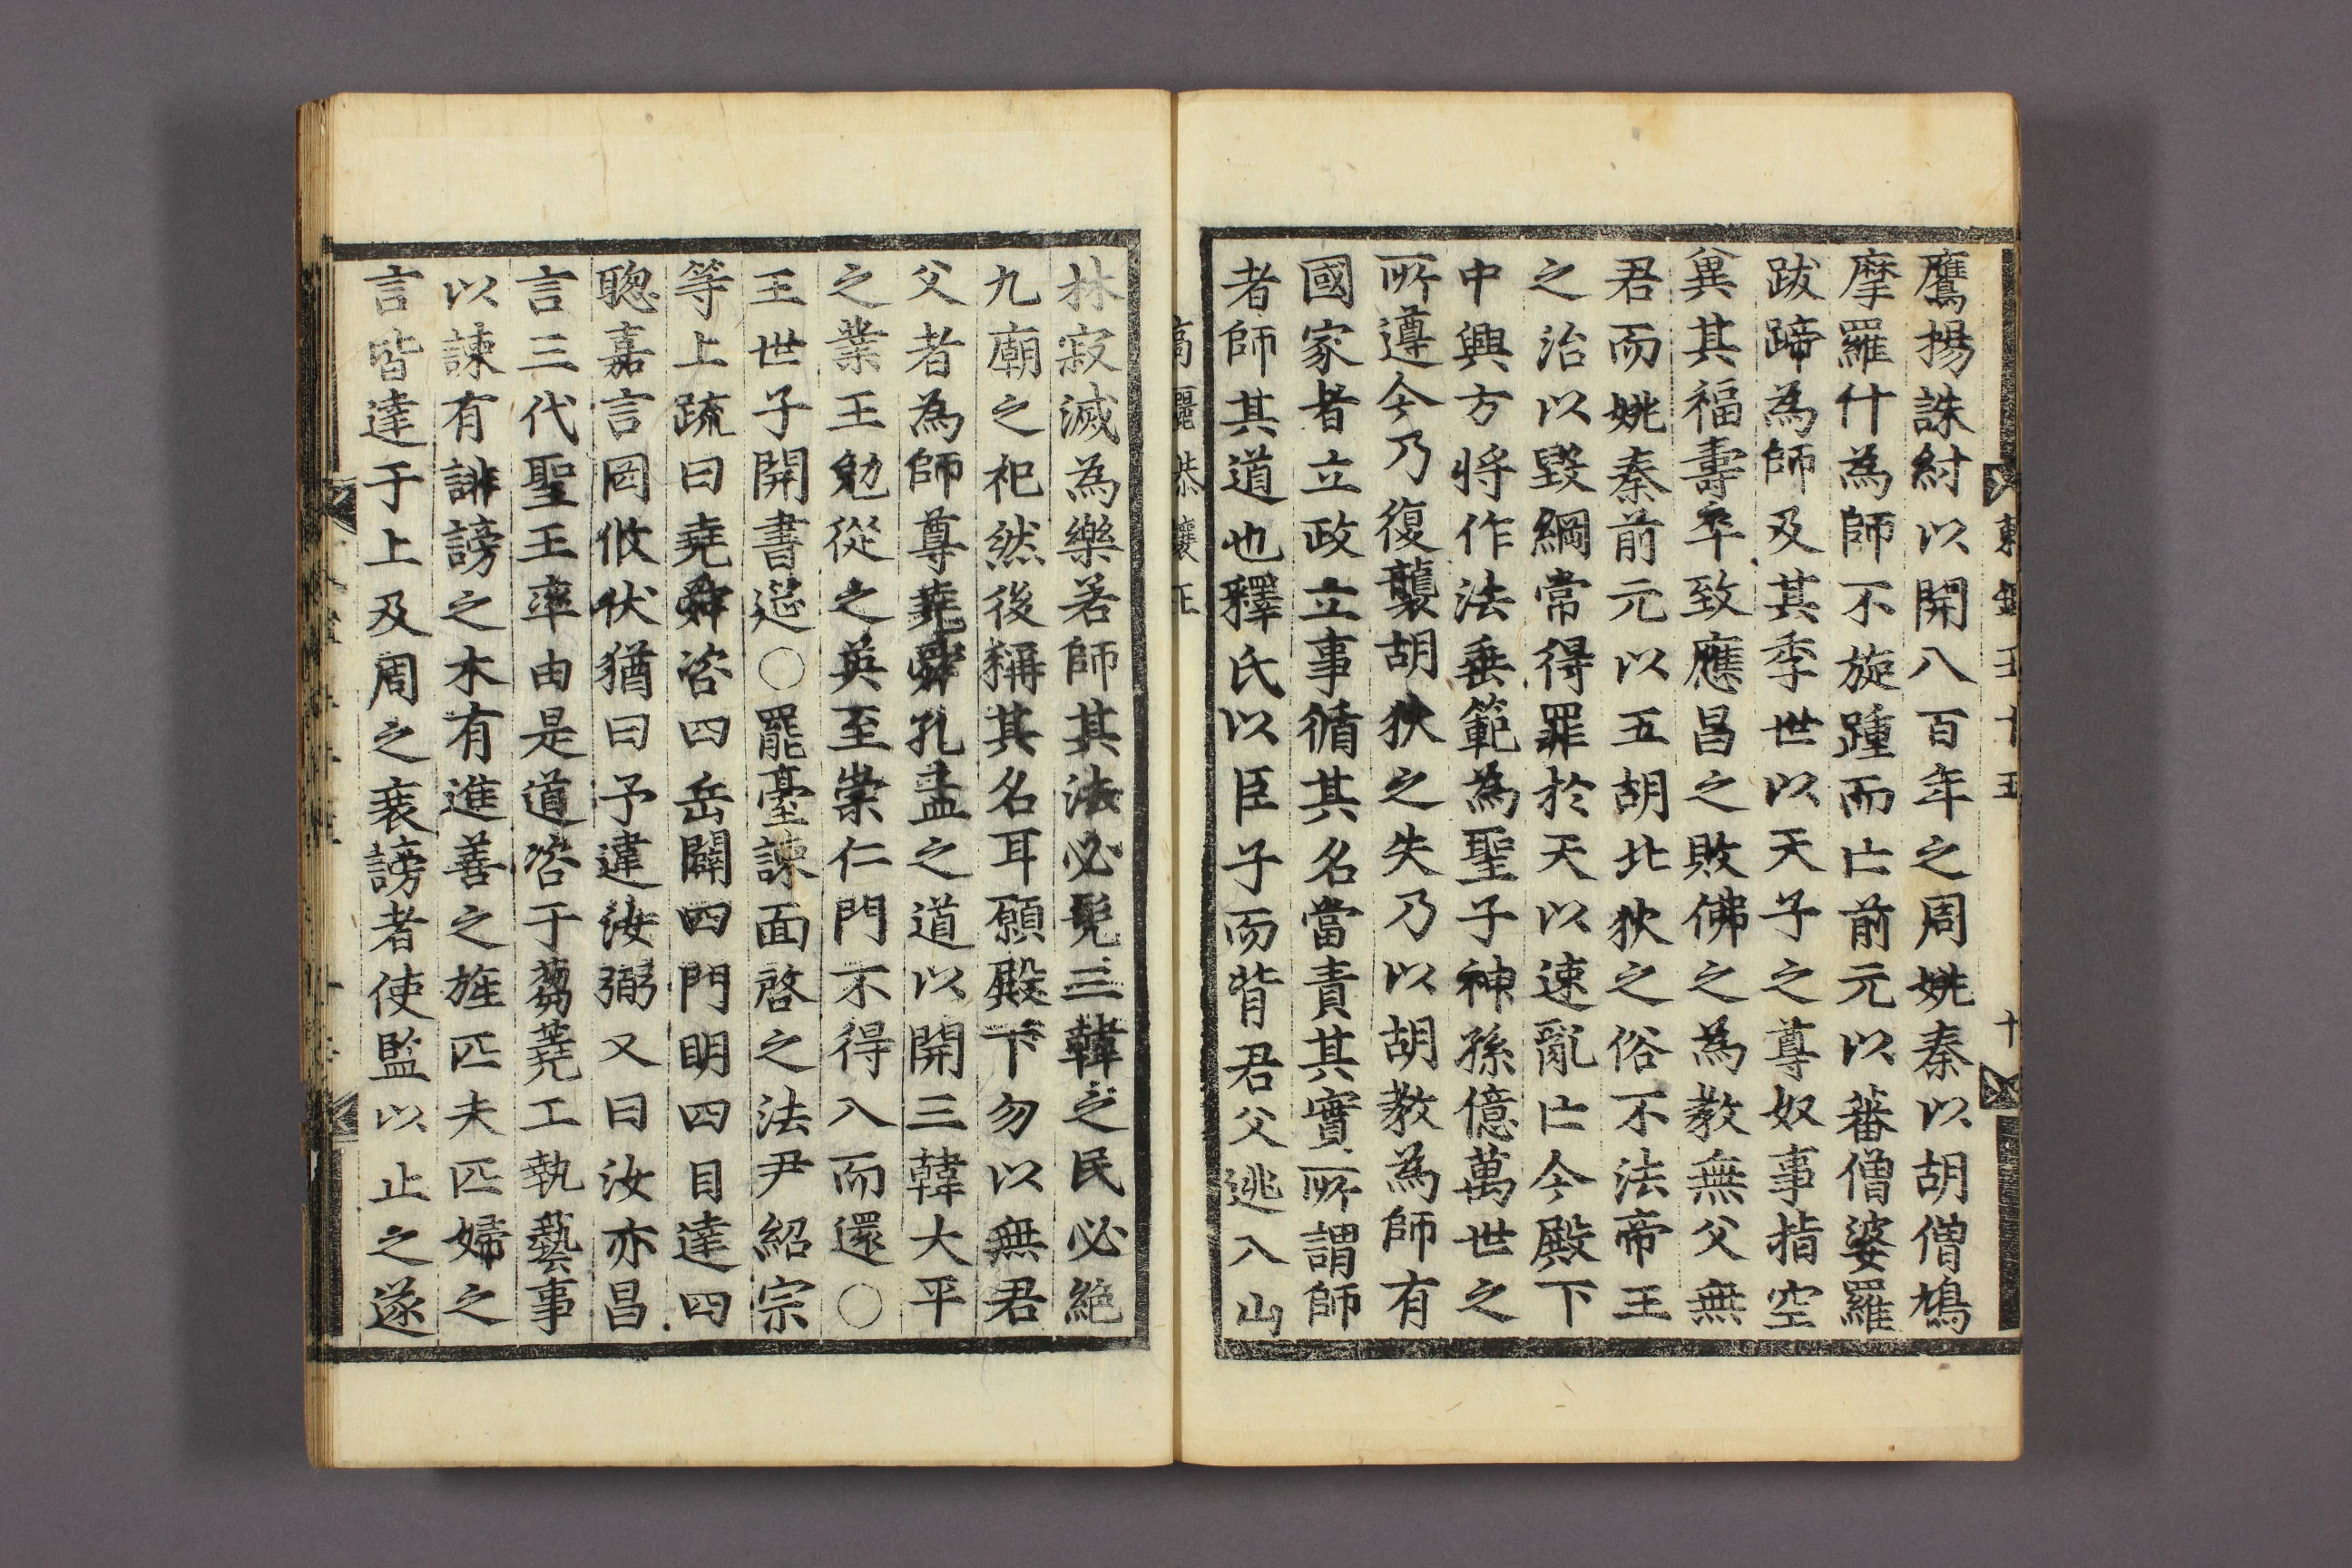 鷹揚誅紂以開八百年之周姚秦以胡僧鳩
摩羅什為師不旋踵而亡前元以蕃僧婆羅
跋蹄為師及其季世以天子之尊奴事指空
兾其福壽卒致應昌之敗佛之為教無父無
君而姚秦前元以五胡北狄之俗不法帝王
之治以毀綱常得罪於天以速亂亡今殿下
中興方將作法垂範為聖子神孫億萬世之
所遵今乃復襲胡狄之失乃以胡教為師有
國家者立政立事循其名當責其實所謂師
者師其道也釋氏以臣子而背君父逃入山
高麗恭讓王
林寂滅為樂若師其法必髡三韓之民必絶
九廟之祀然後稱其名耳願殿下勿以無君
父者為師尊堯舜孔孟之道以開三韓大平
之業王勉從之英至崇仁門不得入而還〇
王世子開書筵〇罷臺諫面啓之法尹紹宗
等上疏曰堯舜咨四岳闢四門明四目達四
聰嘉言罔攸伏猶曰予違汝弼又曰汝亦昌
言三代聖王率由是道咨于蒭蕘工執藝事
以諫有誹謗之木有進善之旌匹夫匹婦之
言皆達于上及周之衰謗者使監以止之遂